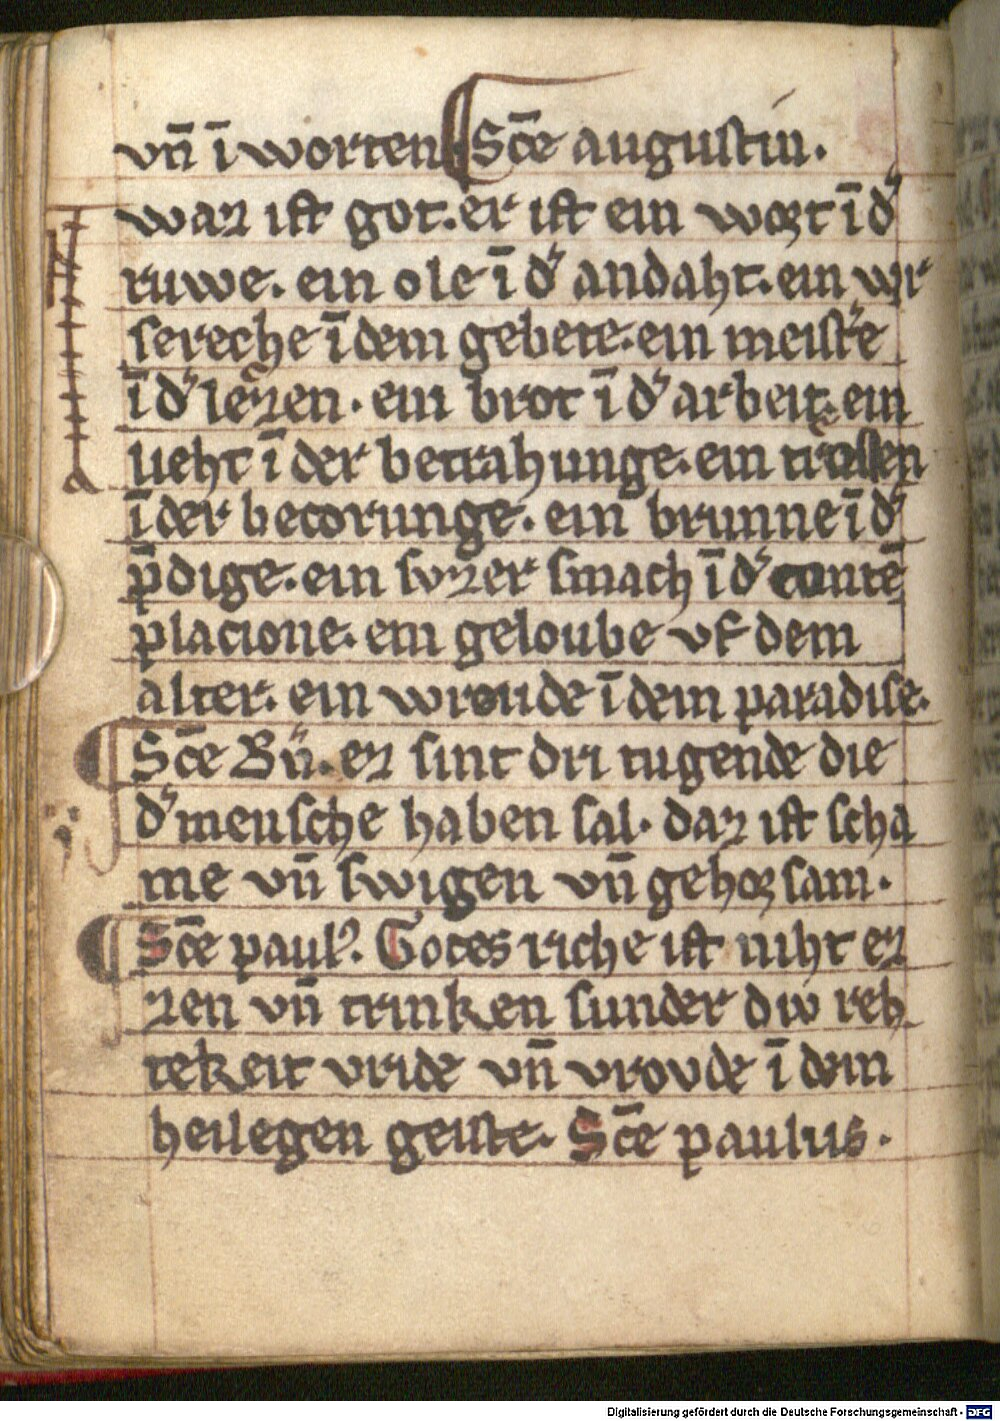 vn̄ ī worten ¶ Sc̄e augustin.
waz ist got. er ist ein wort ī dˀ
ruwe. ein ole ī dˀ andaht. ein wi
sereche ī dem gebete. ein meistˀe
ī dˀ lezen. ein brot ī dˀ arbeit. ein
lieht ī der betrahunge. ein
ī der becorunge. ein brunne ī dˀ
p̄dige. ein svzer smach ī dˀ contē
placione. ein geloube vf dem
alter. ein wroude ī dem paradise.
¶ Sc̄e Bn̄. ez sint dri tugende die
dˀ mensche haben sal. daz ist scha
me vn̄ swigen vn̄ gehorsam.
¶ Sc̄e paulꝰ. Gotes riche ist niht ez
zen vn̄ trinken sunder div reh
tekeit vride vn̄ vrovde ī dem
heilegen geiste. Sc̄e paulus.
Digitalisierung gefördert durch die Deutsche Forschungsgemeinschaft - DFG